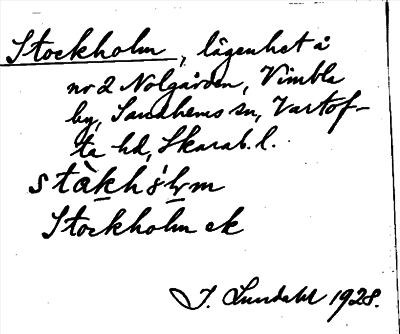 Stockholm, lägenhet å
nr 2 Nolgården, Vimbla
by, Sandhems sn, Vartof-
ta hd, Skarab. l.
stàkhólm
Stockholm ek
J. Lundahl 1928.